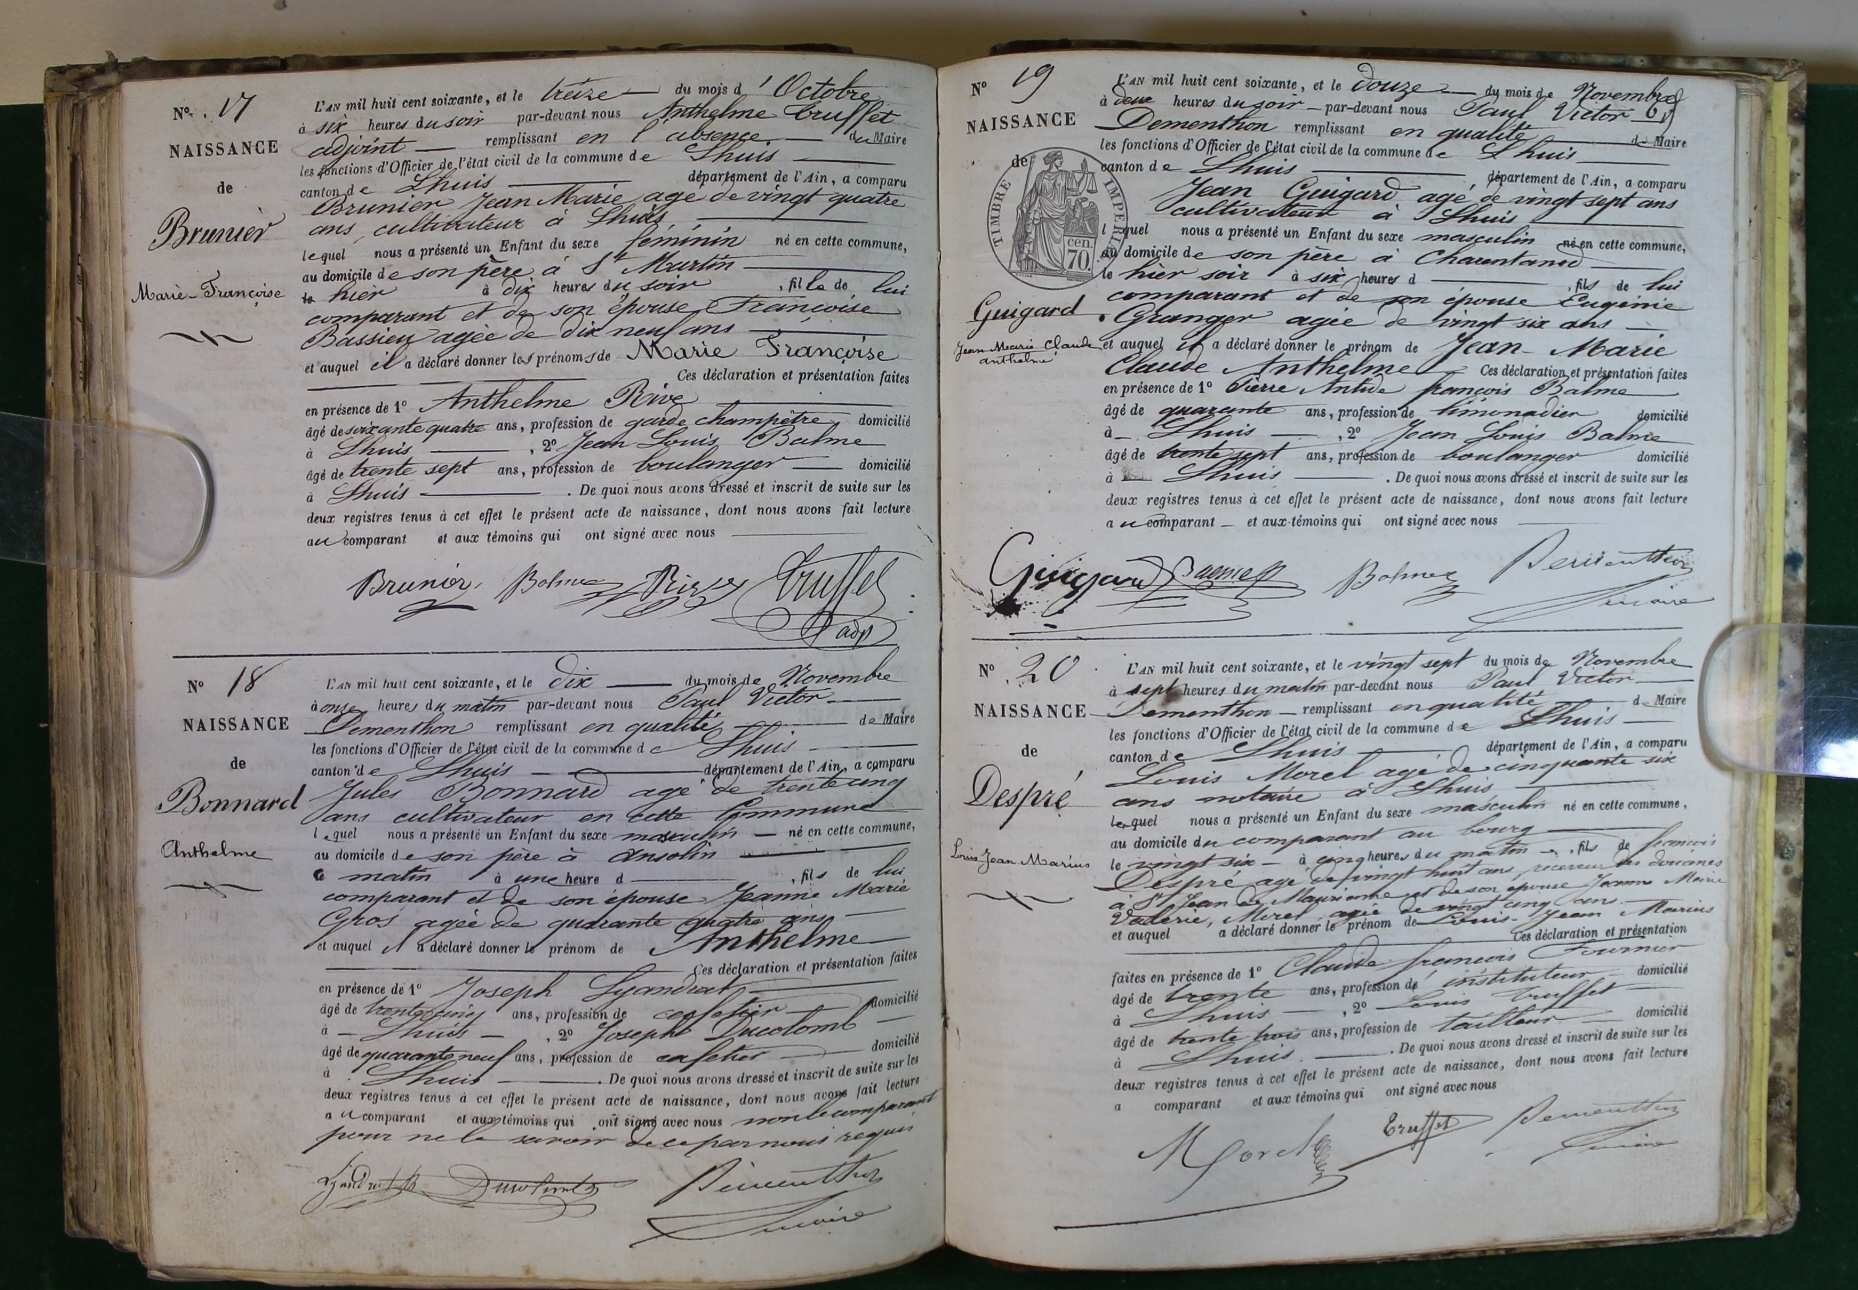 N° 17
NAISSANCE
de
Brunier
Marie-Françoise
L'AN mil huit cent soixante, et le treize du mois d'Octobre
à six heures du soir par-devant nous Anthelme Truffet
adjoint remplissant en l'absence de Maire
les fonctions d'Officier de l'état civil de la commune de Lhuis
canton de Lhuis département de l'Ain, a comparu
Brunier Jean Marie agé de vingt quatre
ans, cultivateur à Lhuis
lequel nous a présenté un Enfant du sexe féminin né en cette commune,
au domicile de son père à St Martin
le hier à dix heures du soir, fille de lui
comparant et de son épouse Françoise
Bassieu agée de dix neuf ans
et auquel il a déclaré donner les prénoms de Marie Françoise
Ces déclaration et présentation faites
en présence de 1° Anthelme Rive
âgé de soixante quatre ans, profession de garde champêtre domicilié
à Lhuis, 2° Jean Louis Balme
âgé de trente sept ans, profession de boulanger domicilié
à Lhuis. De quoi nous avons dressé et inscrit de suite sur les
deux registres tenus à cet effet le présent acte de naissance, dont nous avons fait lecture
au comparant et aux témoins qui ont signé avec nous
Brunier Balme Rive Truffet
adjt
N° 18
NAISSANCE
de
Bonnard
Anthelme
L'AN mil huit cent soixante, et le dix du mois de Novembre
à onze heures du matin par-devant nous Paul Victor
Dementhon remplissant en qualité de Maire
les fonctions d'Officier de l'état civil de la commune de Lhuis
canton de Lhuis département de l'Ain, a comparu
Jules Bonnard agé de trente cinq
ans cultivateur en cette Commune
lequel nous a présenté un Enfant du sexe masculin né en cette commune,
au domicile de son père à Ansolin
ce matin à une heure d, fils de lui
comparant et de son épouse Jeanne Marie
Gros agée de quarante quatre ans
et auquel il a déclaré donner le prénom de Anthelme
Ces déclaration et présentation faites
en présence de 1° Joseph Lyandrat
âgé de trente cinq ans, profession de cafetier domicilié
à Lhuis, 2° Joseph Ducolomb
âgé de quarante neuf ans, profession de cafetier domicilié
à Lhuis. De quoi nous avons dressé et inscrit de suite sur les
deux registres tenus à cet effet le présent acte de naissance, dont nous avons fait lecture
au comparant et aux témoins qui ont signé avec nous non le comparant
pour ne le savoir de ce par nous requis
Lyandrat Ducolomb Dementhon
maire
N° 19
NAISSANCE
de
TIMBRE IMPERIAL
70 cen.
Guigard
Jean Marie Claude
Anthelme
L'AN mil huit cent soixante, et le douze du mois de Novembre
à deux heures du soir par-devant nous Paul Victor
Dementhon remplissant en qualité de Maire
les fonctions d'Officier de l'état civil de la commune de Lhuis
canton de Lhuis département de l'Ain, a comparu
Jean Guigard agé de vingt sept ans
cultivateur à Lhuis
lequel nous a présenté un Enfant du sexe masculin né en cette commune,
au domicile de son père à Charentanod
le hier soir à six heures d, fils de lui
comparant et de son épouse Eugénie
Granger agée de vingt six ans
et auquel il a déclaré donner le prénom de Jean-Marie
Claude Anthelme Ces déclaration et présentation faites
en présence de 1° Pierre Antide françois Balme
âgé de quarante ans, profession de limonadier domicilié
à Lhuis, 2° Jean Louis Balme
âgé de trente sept ans, profession de boulanger domicilié
à Lhuis. De quoi nous avons dressé et inscrit de suite sur les
deux registres tenus à cet effet le présent acte de naissance, dont nous avons fait lecture
au comparant et aux témoins qui ont signé avec nous
Guigard Balme Balme Dementhon
maire
N° 20
NAISSANCE
de
Despré
Louis Jean Marius
L'AN mil huit cent soixante, et le vingt sept du mois de Novembre
à sept heures du matin par-devant nous Paul Victor
Dementhon remplissant en qualité de Maire
les fonctions d'Officier de l'état civil de la commune de Lhuis
canton de Lhuis département de l'Ain, a comparu
Louis Morel agé de cinquante six
ans notaire à Lhuis
lequel nous a présenté un Enfant du sexe masculin né en cette commune,
au domicile du comparant au bourg
le vingt six à cinq heures du matin, fils de francois
Despré agé de vingt huit ans, receveur des douanes
à St Jean de Maurienne et de son épouse Jeanne Marie
Valérie, Morel agée de vingt cinq ans
et auquel a déclaré donner le prénom de Louis-Jean Marius
Ces déclaration et présentation
faites en présence de 1° Claude françois Fournier
âgé de trente ans, profession de instituteur domicilié
à Lhuis, 2° Louis Truffet
âgé de trente trois ans, profession de tailleur domicilié
à Lhuis. De quoi nous avons dressé et inscrit de suite sur les
deux registres tenus à cet effet le présent acte de naissance, dont nous avons fait lecture
a comparant et aux témoins qui ont signé avec nous
Morel Truffet Dementhon
maire